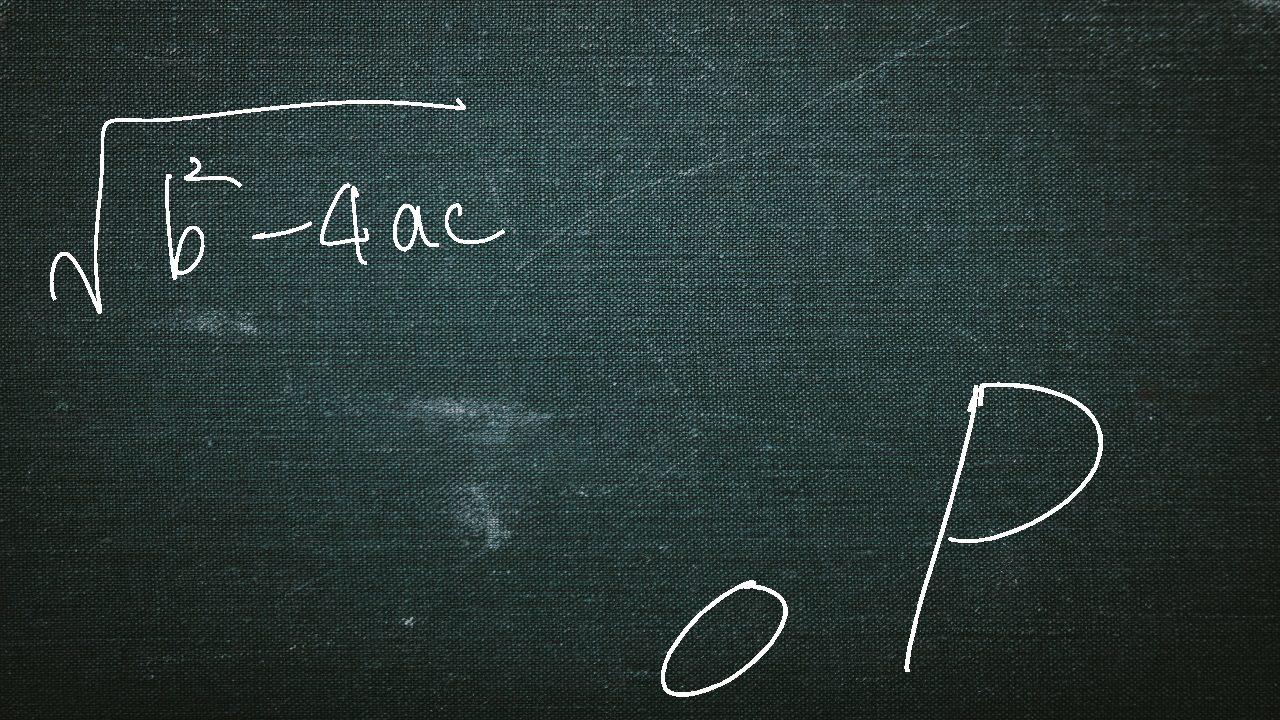 √b²-4ac
o P